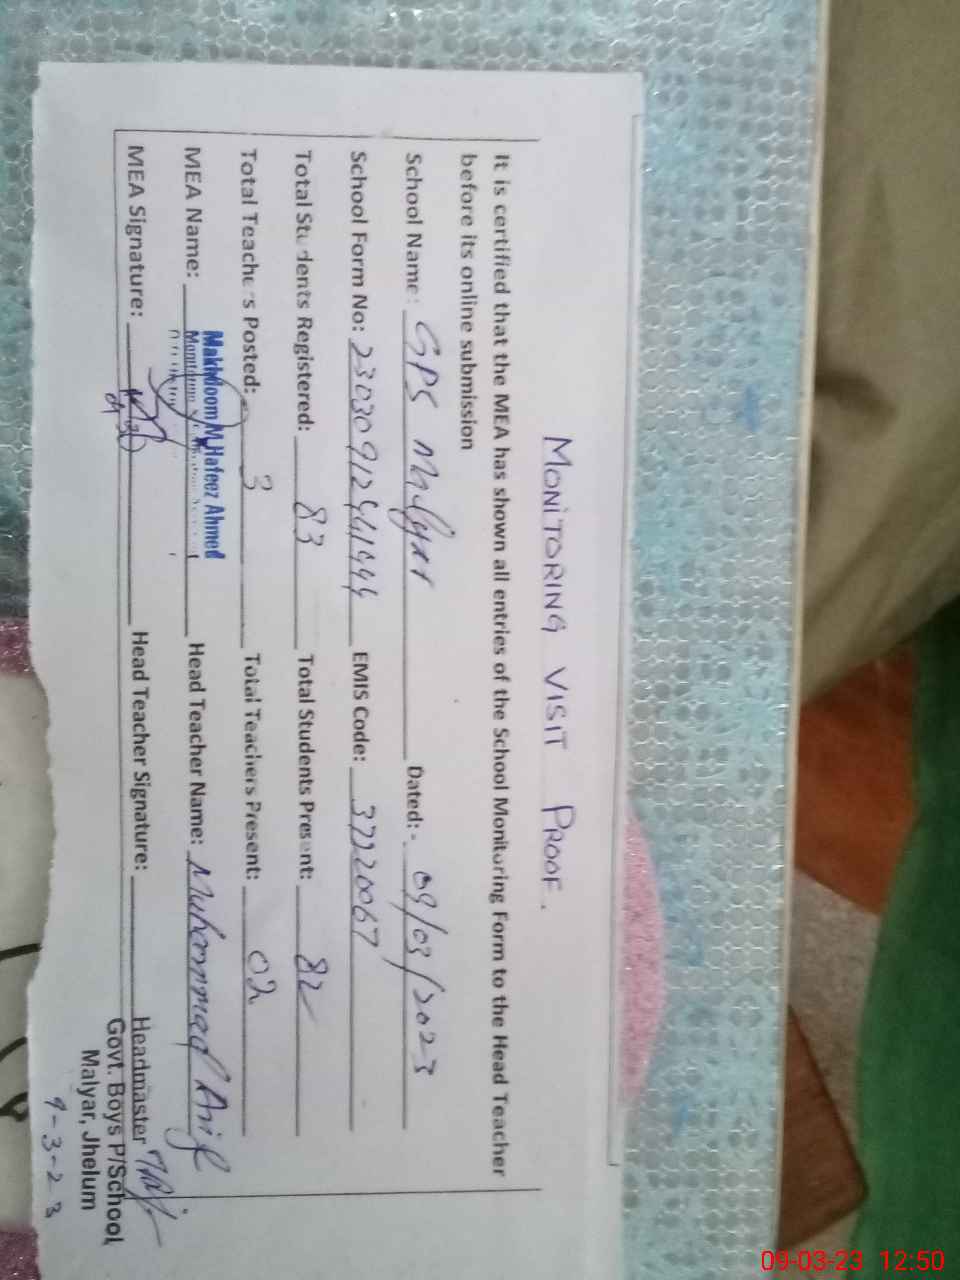 MONITORING VISIT PROOF.
It is certified that the MEA has shown all entries of the School Monitoring Form to the Head Teacher
before its online submission
School Name: GPS Malyar Dated:- 09/03/2023
School Form No: EMIS Code: 37220067
Total Students Registered: 83 Total Students Present: 82
Total Teachers Posted: 3 Total Teachers Present: 02
MEA Name: Makhdoom M. Hafeez Ahmed Head Teacher Name: Muhammad Arif
Monitoring
MEA Signature: Head Teacher Signature:
Headmaster
Govt. Boys P/School
Malyar, Jhelum
9-3-23
09-03-23 12:50